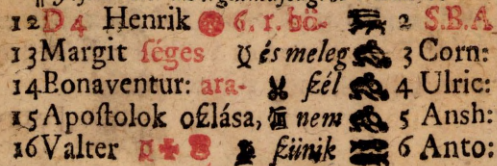 12 D 4 Henrik 6. r. bö- 2 S.B.A
13 Margit ſéges és meleg 3 Corn:
14 Bonaventur: ara- ſzél 4 Ulric:
15 Apoſtolok oſzlása, nem 5 Ansh:
16 Valter ſzünik 6 Anto: